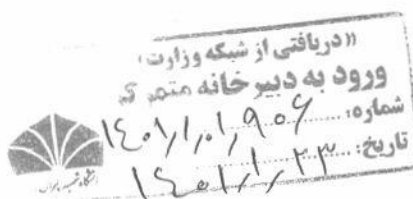 ((دریافتی از شبکه وزارت))
ورود به دبیرخانه متمرکز
شماره: ۱۴۰۱/۱/۰۱/۹۰۶
تاریخ: ۱۴۰۱/۱/۲۳